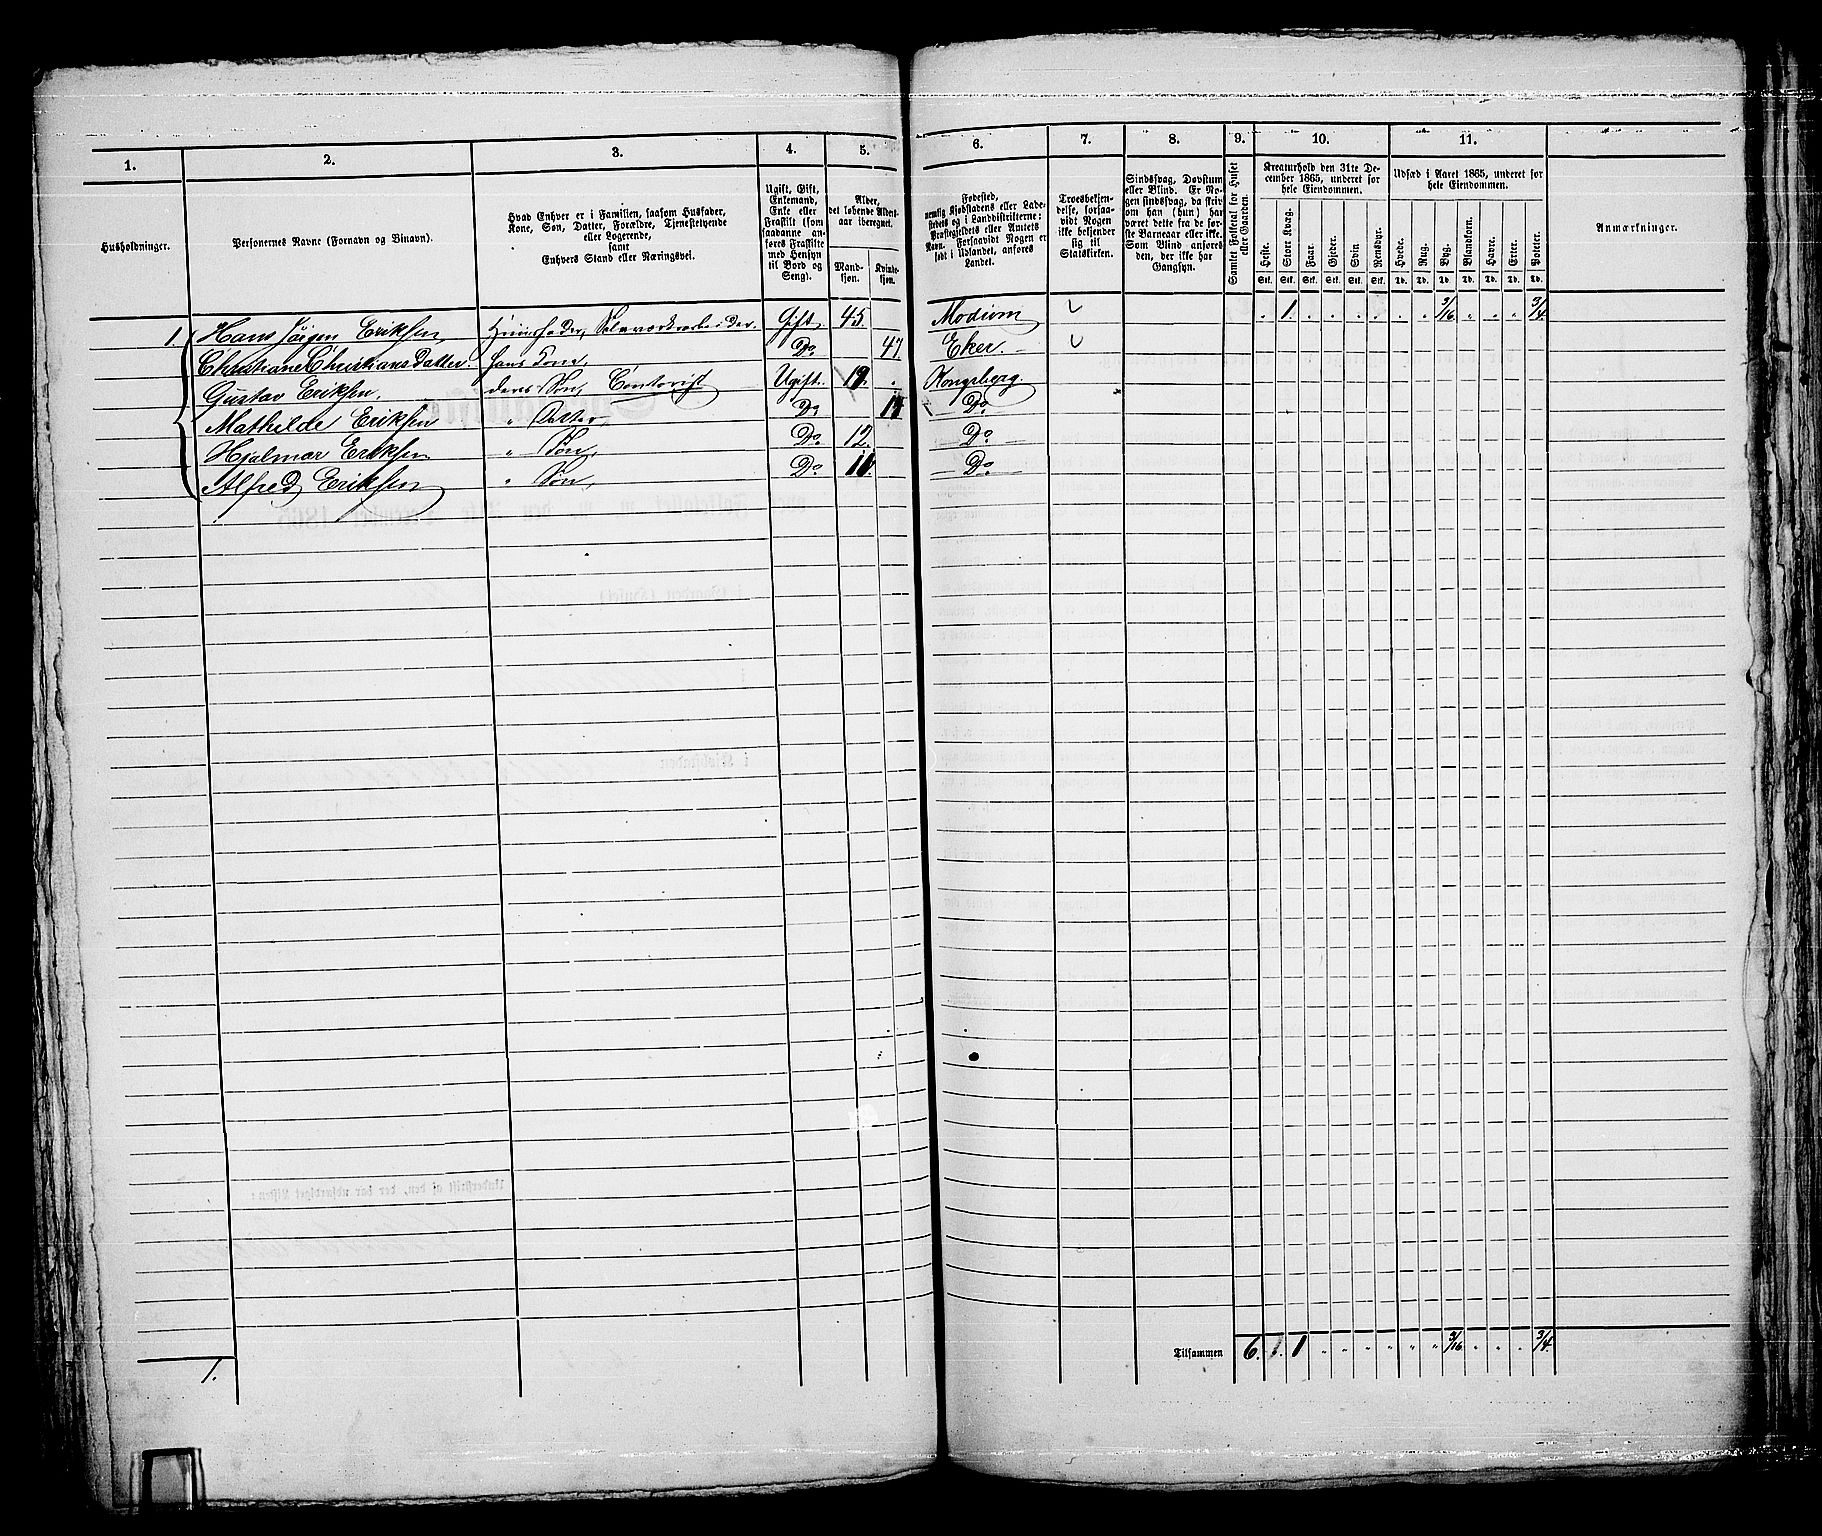 1. 2. 3. 4. 5. 6. 7. 8. 9. 10. 11.
Husholdninger.
Personernes Navne (Fornavn og Binavn).
Hvad Enhver er i Familien, saasom Husfader,
Kone, Søn, Datter, Forældre, Tjenestetyende
eller Logerende,
samt
Enhvers Stand eller Næringsvei.
Ugift, Gift,
Enkemand,
Enke eller
Fraskilt (som
saadanne an-
føres Fraskilte
med Hensyn
til Bord og
Seng).
Alder,
det løbende Alders-
aar iberegnet.
Mand-
kjøn.
Kvinde-
kjøn.
Fødested,
nemlig Kjøbstadens eller Lade-
stedets og i Landdistrikterne:
Præstegjeldets eller Amtets
Navn. Forsaavidt Nogen er
født i Udlandet, anføres
Landet.
Troesbekjen-
delse, forsaa-
vidt Nogen
ikke bekjender
sig til
Statskirken.
Sindssvag, Døvstum
eller Blind. Er No-
gen sindssvag, da skriv
om han (hun) har
været dette fra de før-
ste Barneaar eller ikke.
Som Blind anføres
den, der ikke har
Gangsyn.
Samlet Folketal for Huset
eller Gaarden.
Kreaturhold den 31te De-
cember 1865, underet for
hele Eiendommen.
Heste. Stort Kvæg. Faar. Gjeder. Svin. Rensdyr.
Stk. Stk. Stk. Stk. Stk. Stk.
Udsæd i Aaret 1865, underet for
hele Eiendommen.
Hvede. Rug. Byg. Blandkorn. Havre. Erter. Poteter.
Td. Td. Td. Td. Td. Td. Td.
Anmærkninger.
1. Hans Jørgen Eriksen Huusfader, Sølvværksarbeider. Gift 45. Modum 1. 3/16 3/4.
Christiane ChristiansDatter. hans Kone, Do 47. Eker.
Gustav Eriksen, deres Søn, Contorist Ugift. 19. Kongsberg.
Mathilde Eriksen " Datter, Do Do
Hjalmar Eriksen " Søn, Do 12. Do
Alfred Eriksen " Søn, Do Do
1.
Tilsammen 6. 1 3/16 3/4.